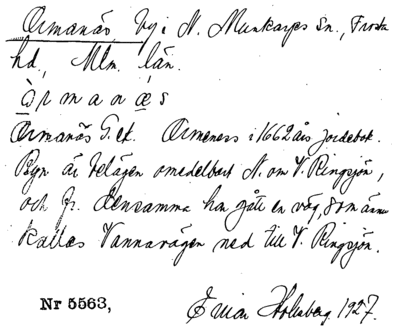 Ormanäs, by i N. Munkarps sn., Frosta
hd, Mlm. län.
òrmanæs
Ormanäs G.ek. Ormeness i 1662 års jordebok.
Byn är belägen omedelbart N. om V. Ringsjön,
och fr. densamma har gått en väg, som ännu
kallas Vannavägen ned till V. Ringsjön.
Nr 5563, Holmberg. 1927.